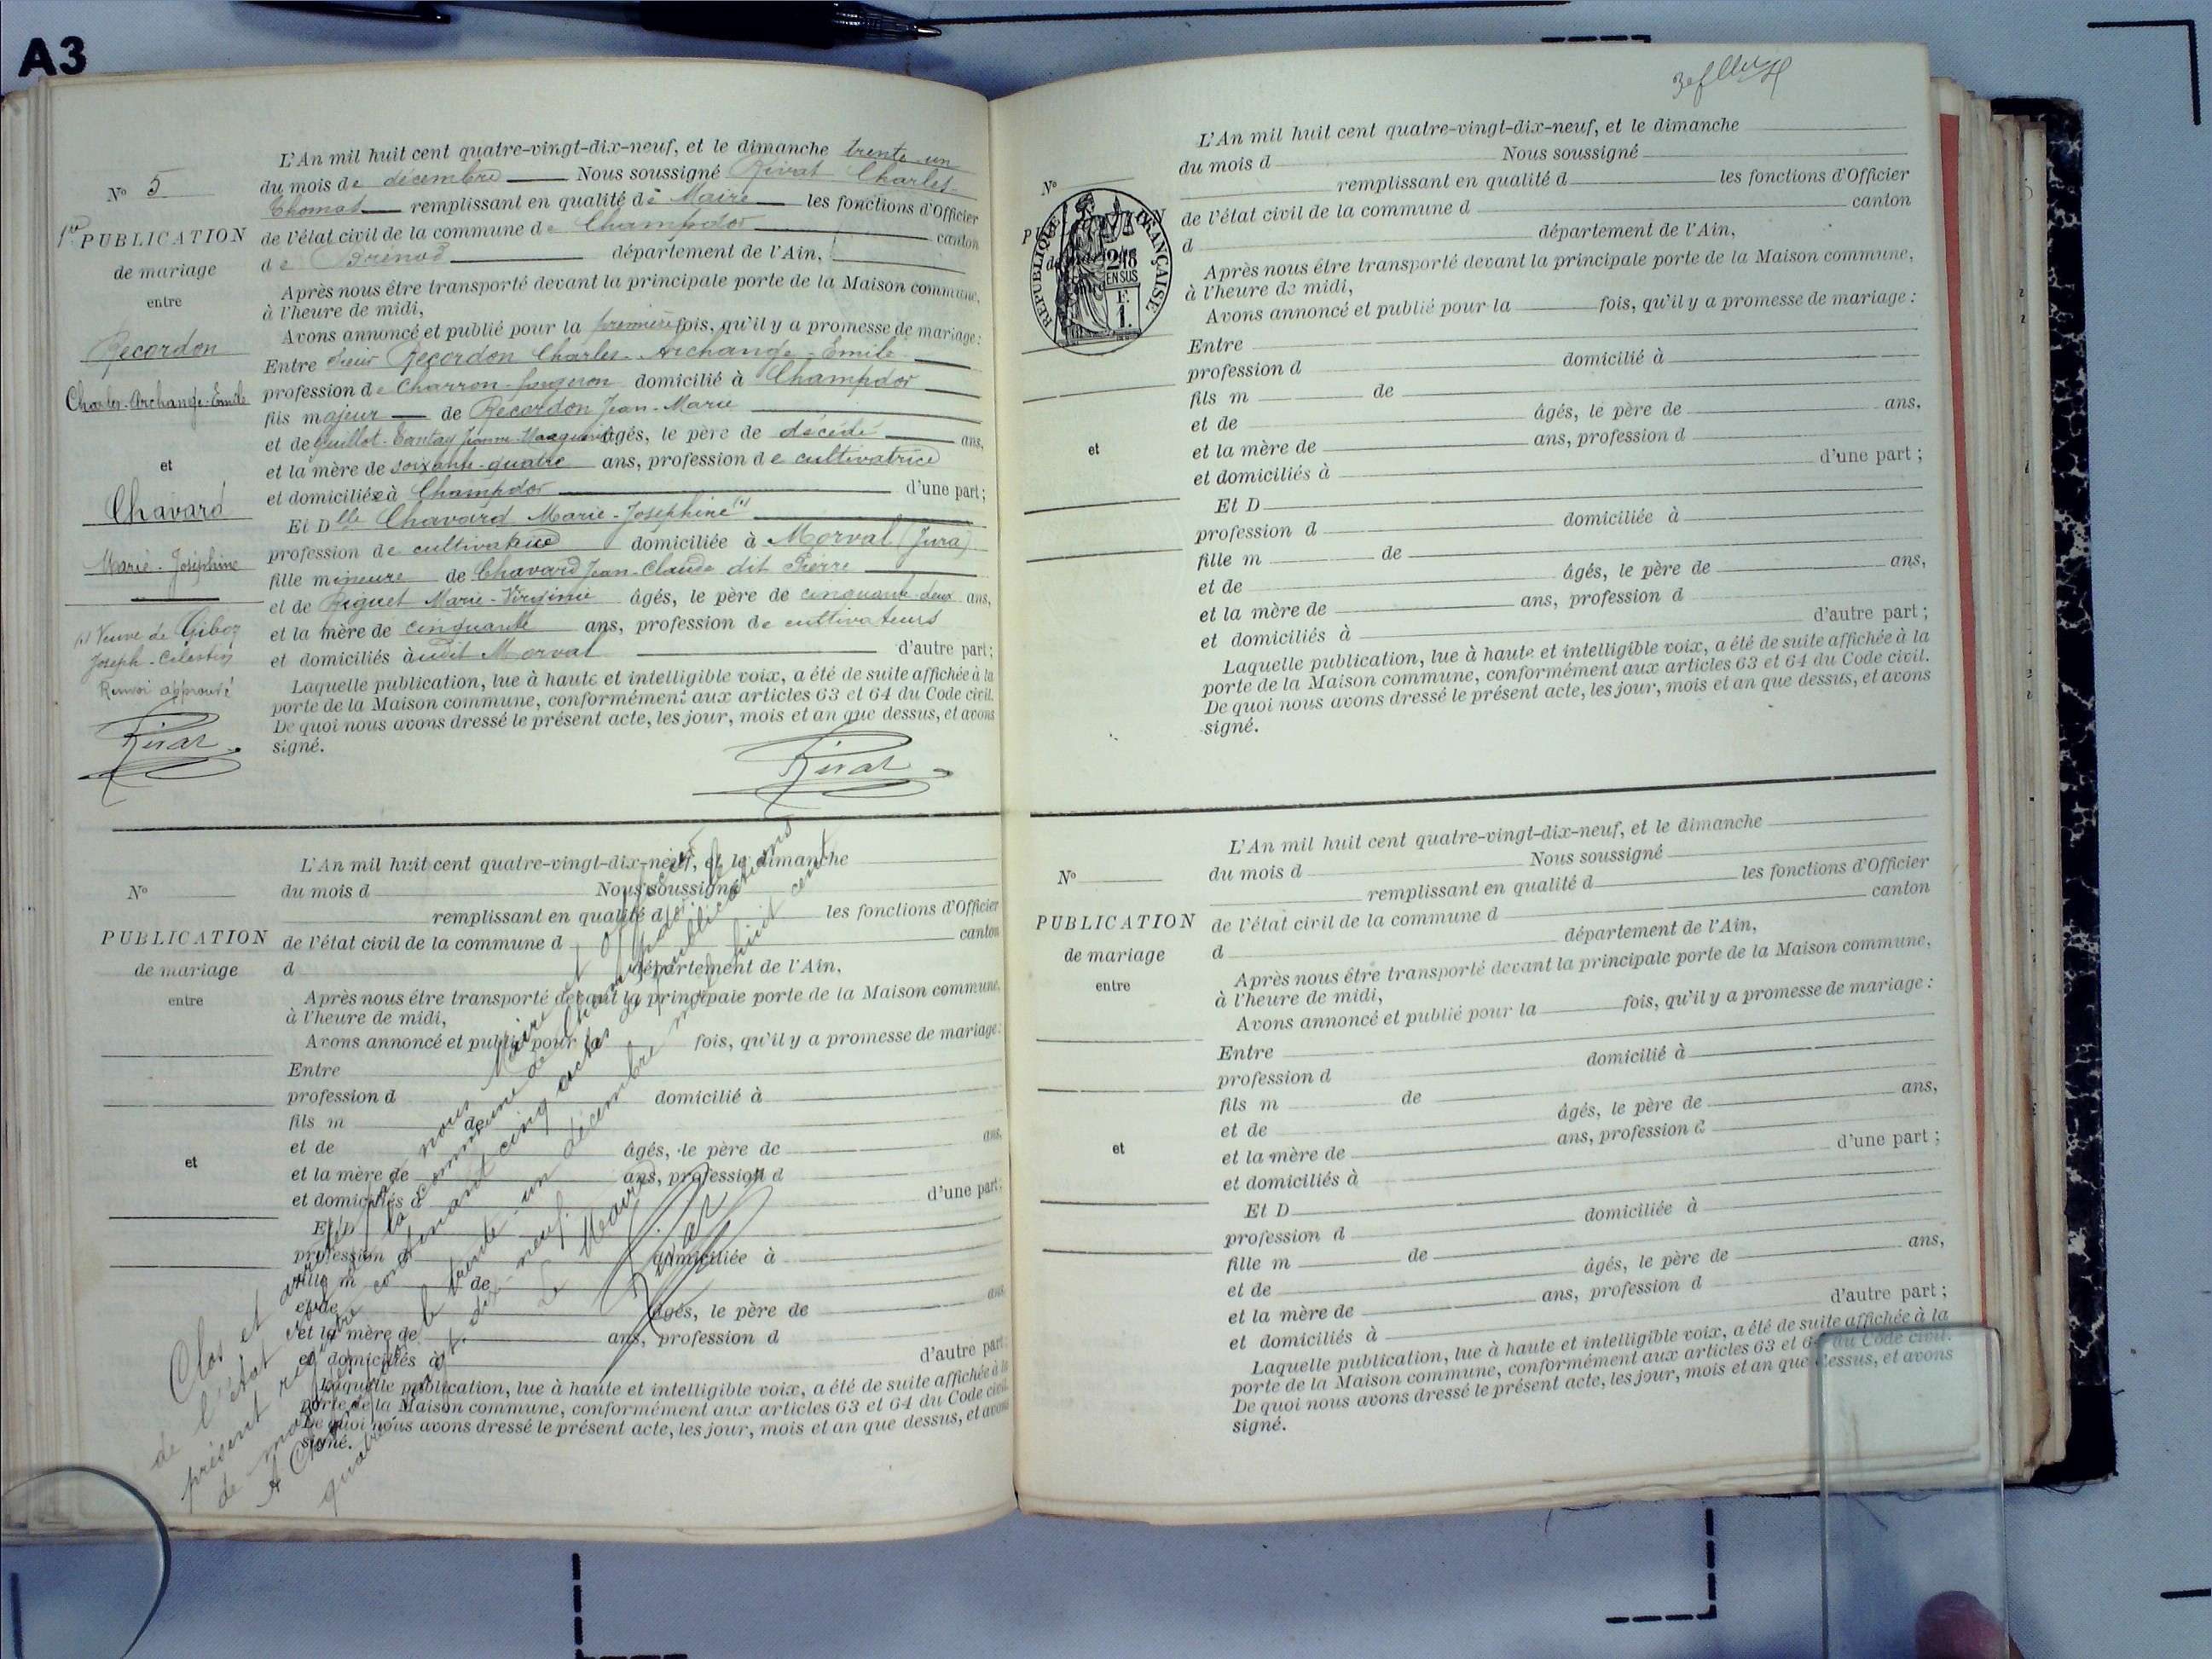 A3
L'An mil huit cent quatre-vingt-dix-neuf, et le dimanche trente-un
du mois de décembre Nous soussigné Rivat Charles-
Thomas remplissant en qualité de Maire les fonctions d'Officier
de l'état civil de la commune de Champdor canton
de Brénod département de l'Ain,
Après nous être transporté devant la principale porte de la Maison commune,
à l'heure de midi,
Avons annoncé et publié pour la première fois, qu'il y a promesse de mariage:
Entre sieur Recordon Charles-Archange-Emile
profession de Charron-forgeron domicilié à Champdor
fils majeur de Recordon Jean-Marie
et de Guillot- âgés, le père de décédé ans,
et la mère de soixante-quatre ans, profession de cultivatrice
et domiciliée à Champdor d'une part;
Et Dlle Chavard Marie-Joséphine (1)
profession de cultivatrice domiciliée à Morval (Jura)
fille mineure de Chavard Jean-Claude dit Pierre
et de Riguet Marie-Virginie âgés, le père de cinquante-deux ans,
et la mère de cinquante ans, profession de cultivateurs
et domiciliés à udit Morval d'autre part;
Laquelle publication, lue à haute et intelligible voix, a été de suite affichée à la
porte de la Maison commune, conformément aux articles 63 et 64 du Code civil.
De quoi nous avons dressé le présent acte, les jour, mois et an que dessus, et avons
signé.
Rivat
No 5
1re PUBLICATION
de mariage
entre
Recordon
Charles-Archange-Emile
et
Chavard
Marie-Joséphine
(1) Veuve de Giboz
Joseph-Célestin
Renvoi approuvé
Rivat
L'An mil huit cent quatre-vingt-dix-neuf, et le dimanche
No du mois d Nous soussigné
remplissant en qualité d les fonctions d'Officier
PUBLICATION de l'état civil de la commune d canton
de mariage d département de l'Ain,
entre Après nous être transporté devant la principale porte de la Maison commune,
à l'heure de midi,
Avons annoncé et publié pour la fois, qu'il y a promesse de mariage:
Entre
profession d domicilié à
fils m de
et de âgés, le père de ans,
et et la mère de ans, profession d
et domiciliés à d'une part;
Et D
profession d domiciliée à
fille m de
et de âgés, le père de ans
et la mère de ans, profession d
et domiciliés à d'autre part
Laquelle publication, lue à haute et intelligible voix, a été de suite affichée à la
porte de la Maison commune, conformément aux articles 63 et 64 du Code civil.
De quoi nous avons dressé le présent acte, les jour, mois et an que dessus, et avons
signé.
Clos et arrêté par nous Maire et Officier
de l'état civil de la commune de Champdor le
présent registre contenant cinq actes de publications
de mariage
A Champdor le trente-un décembre mil huit cent
quatre-vingt-dix-neuf.
Le Maire
Rivat
L'An mil huit cent quatre-vingt-dix-neuf, et le dimanche
No du mois d Nous soussigné
remplissant en qualité d les fonctions d'Officier
de l'état civil de la commune d canton
d département de l'Ain,
RÉPUBLIQUE FRANÇAISE
2/10
EN SUS
F.
1.
Après nous être transporté devant la principale porte de la Maison commune,
à l'heure de midi,
Avons annoncé et publié pour la fois, qu'il y a promesse de mariage :
Entre
profession d domicilié à
fils m de
et de âgés, le père de ans,
et et la mère de ans, profession d
et domiciliés à d'une part ;
Et D
profession d domiciliée à
fille m de
et de âgés, le père de ans,
et la mère de ans, profession d
et domiciliés à d'autre part ;
Laquelle publication, lue à haute et intelligible voix, a été de suite affichée à la
porte de la Maison commune, conformément aux articles 63 et 64 du Code civil.
De quoi nous avons dressé le présent acte, les jour, mois et an que dessus, et avons
signé.
L'An mil huit cent quatre-vingt-dix-neuf, et le dimanche
No du mois d Nous soussigné
remplissant en qualité d les fonctions d'Officier
PUBLICATION de l'état civil de la commune d canton
de mariage d département de l'Ain,
entre Après nous être transporté devant la principale porte de la Maison commune,
à l'heure de midi,
Avons annoncé et publié pour la fois, qu'il y a promesse de mariage :
Entre
profession d domicilié à
fils m de
et de âgés, le père de ans,
et et la mère de ans, profession d
et domiciliés à d'une part ;
Et D
profession d domiciliée à
fille m de
et de âgés, le père de ans,
et la mère de ans, profession d
et domiciliés à d'autre part ;
Laquelle publication, lue à haute et intelligible voix, a été de suite affichée à la
porte de la Maison commune, conformément aux articles 63 et 64 du Code civil.
De quoi nous avons dressé le présent acte, les jour, mois et an que dessus, et avons
signé.